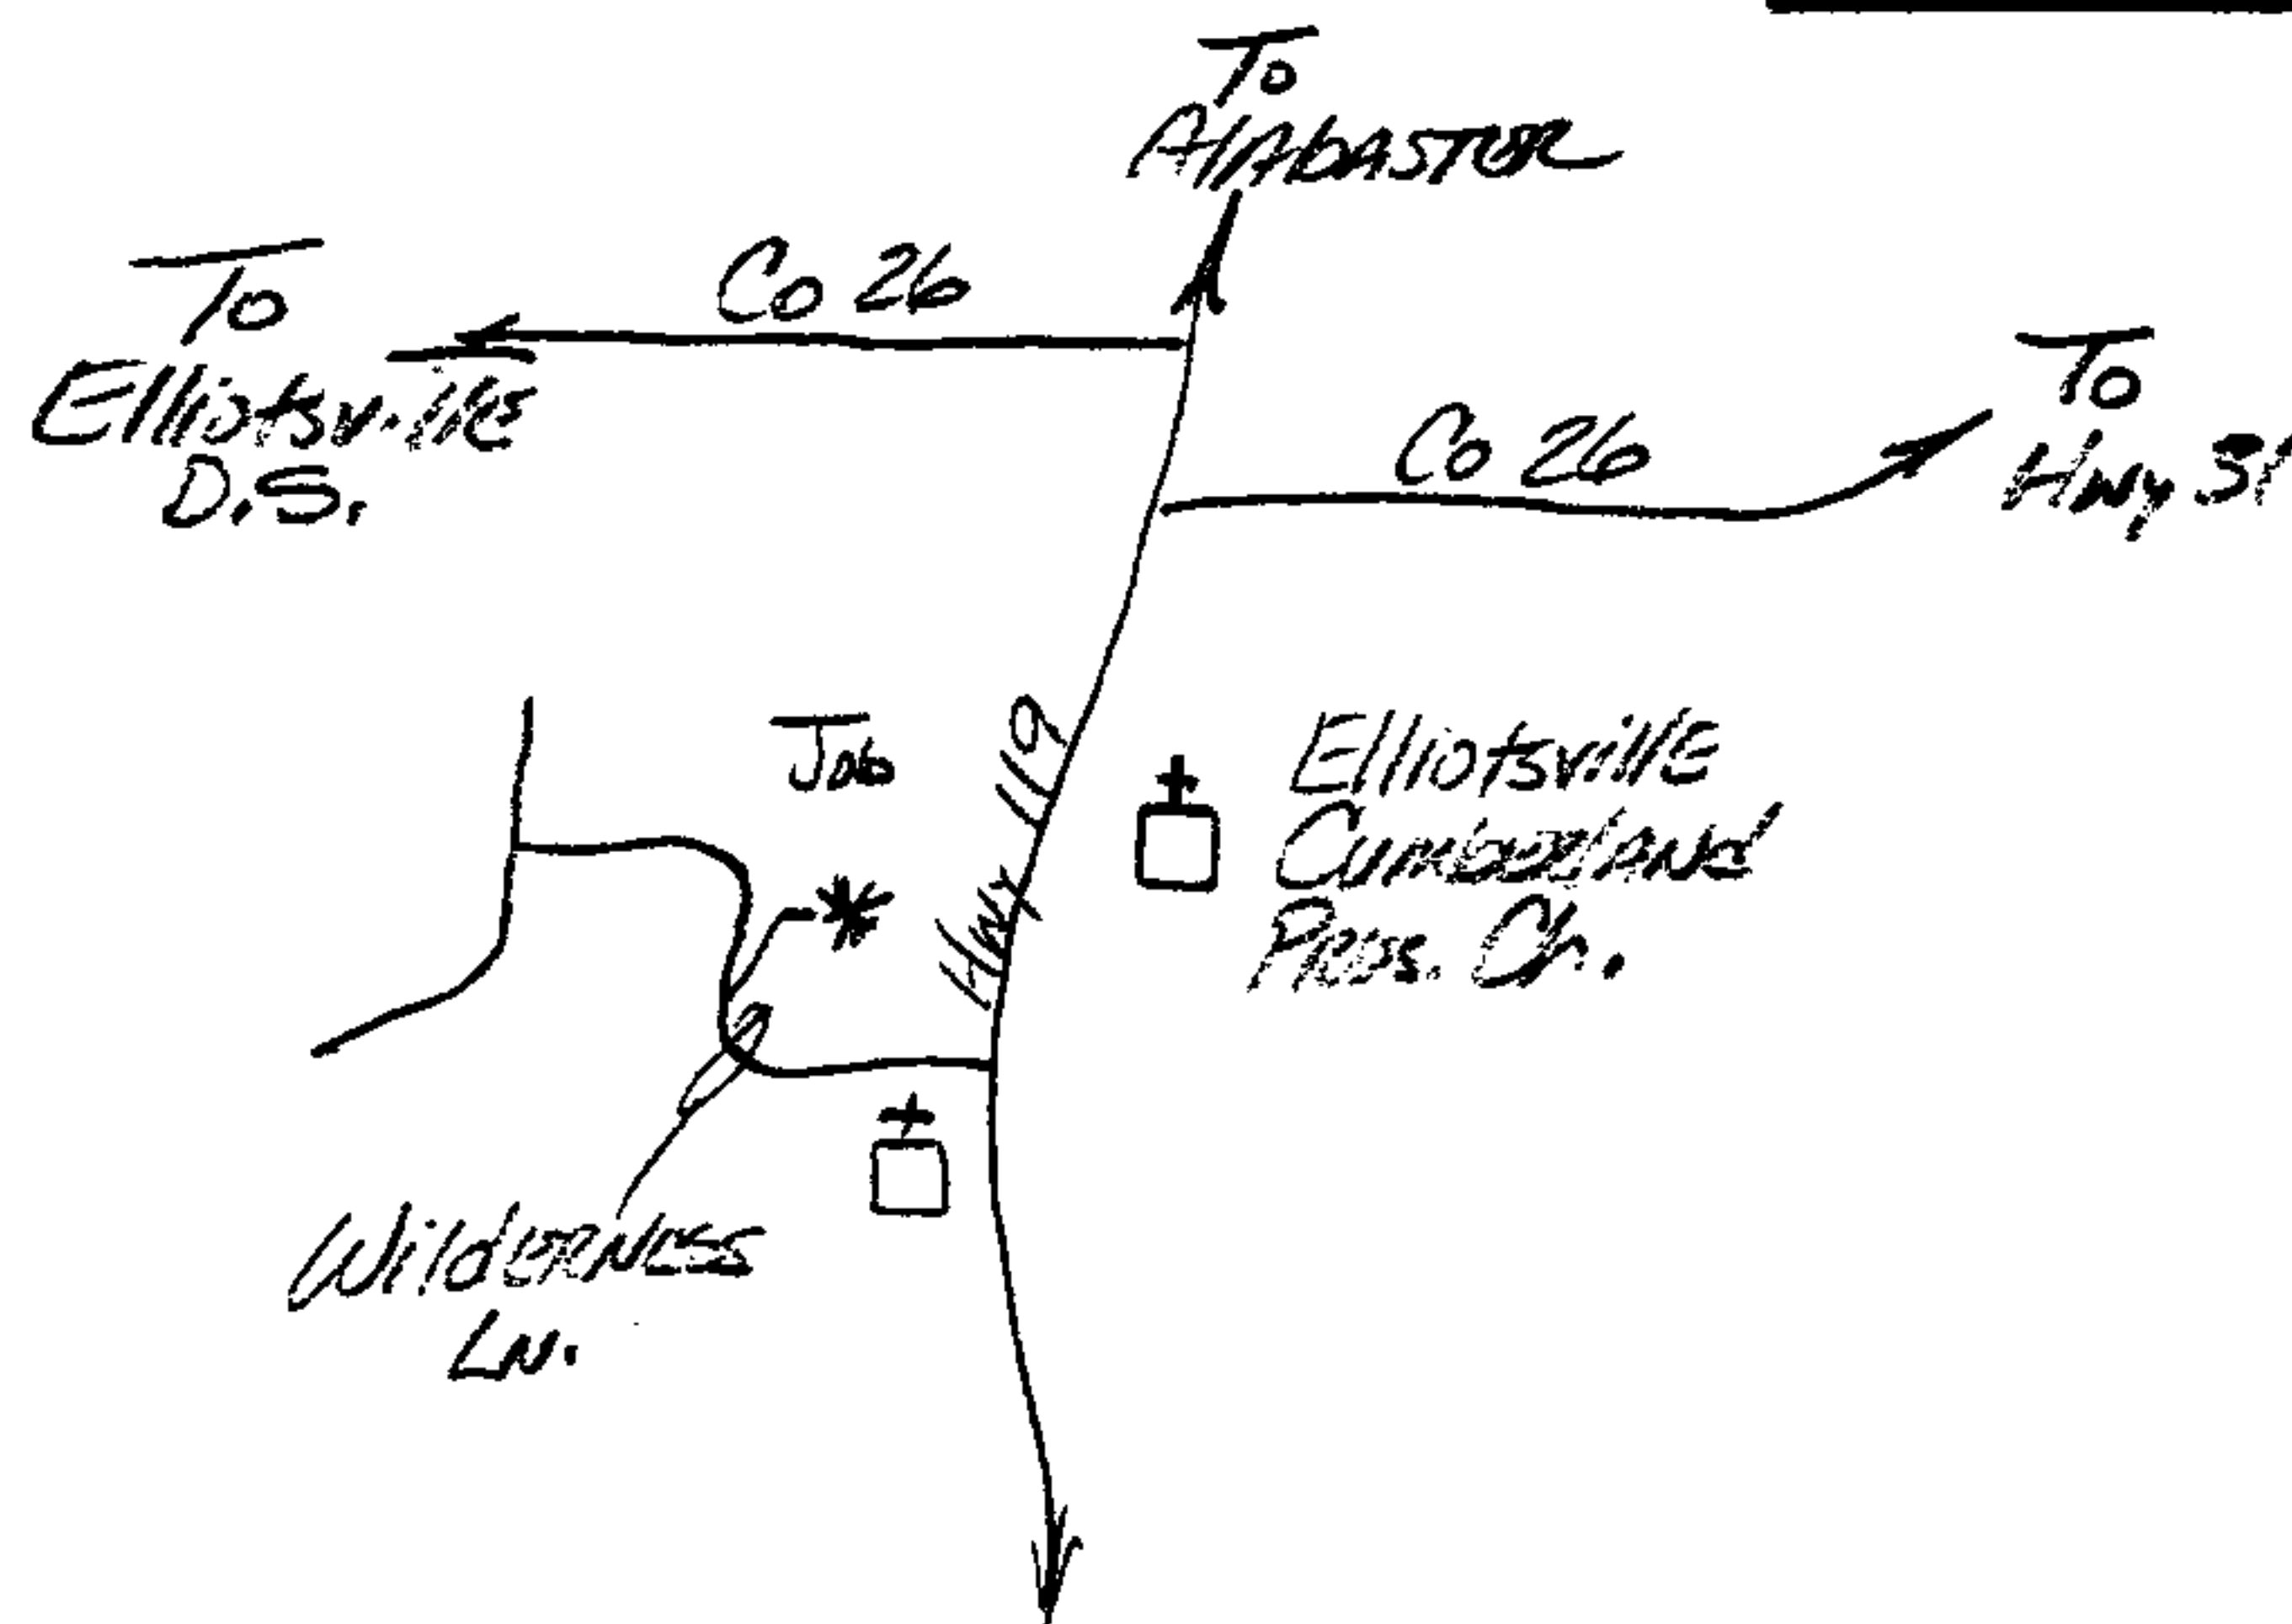 To
Alabaster
Co 26
To
Elliotsville
D.S.
Co 26
To
Hwy 31
Hwy 119
Job
Elliotsville
Cumberland
Pres. Ch.
Wilderness
Ln.